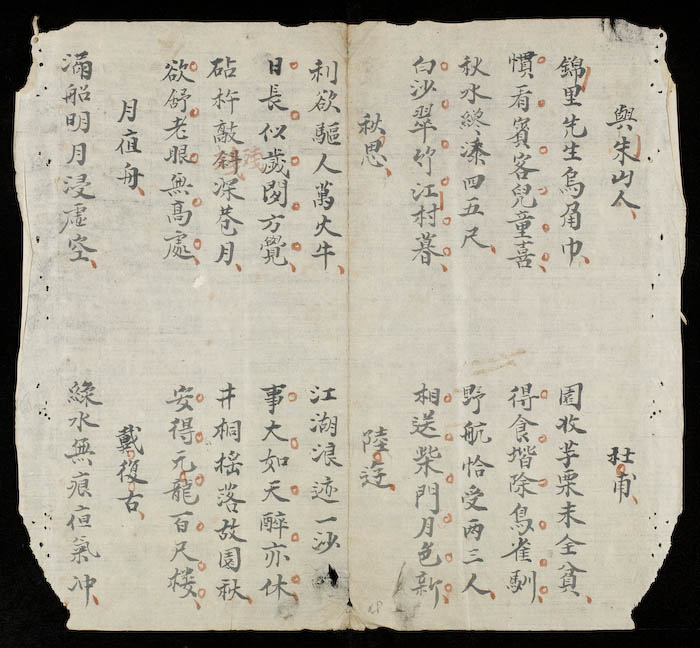 與朱山人 杜甫
錦里先生烏角巾 園收芋栗未全貧
慣看賓客兒童喜 得食堦除鳥雀馴
秋水纔溱四五尺 野航恰受两三人
白沙翠竹江村暮 相送柴門月色新
秋思 陸逰
利欲驅人萬火牛 江湖浪迹一沙
日長似歲閑方覺 事大如天醉亦休
砧杵敲斜深巷月 井桐揺落故園秋
欲舒老眼無高處 安得元龍百尺楼
月夜舟 戴復古
滿船明月浸虛空 綠水無痕夜氣冲